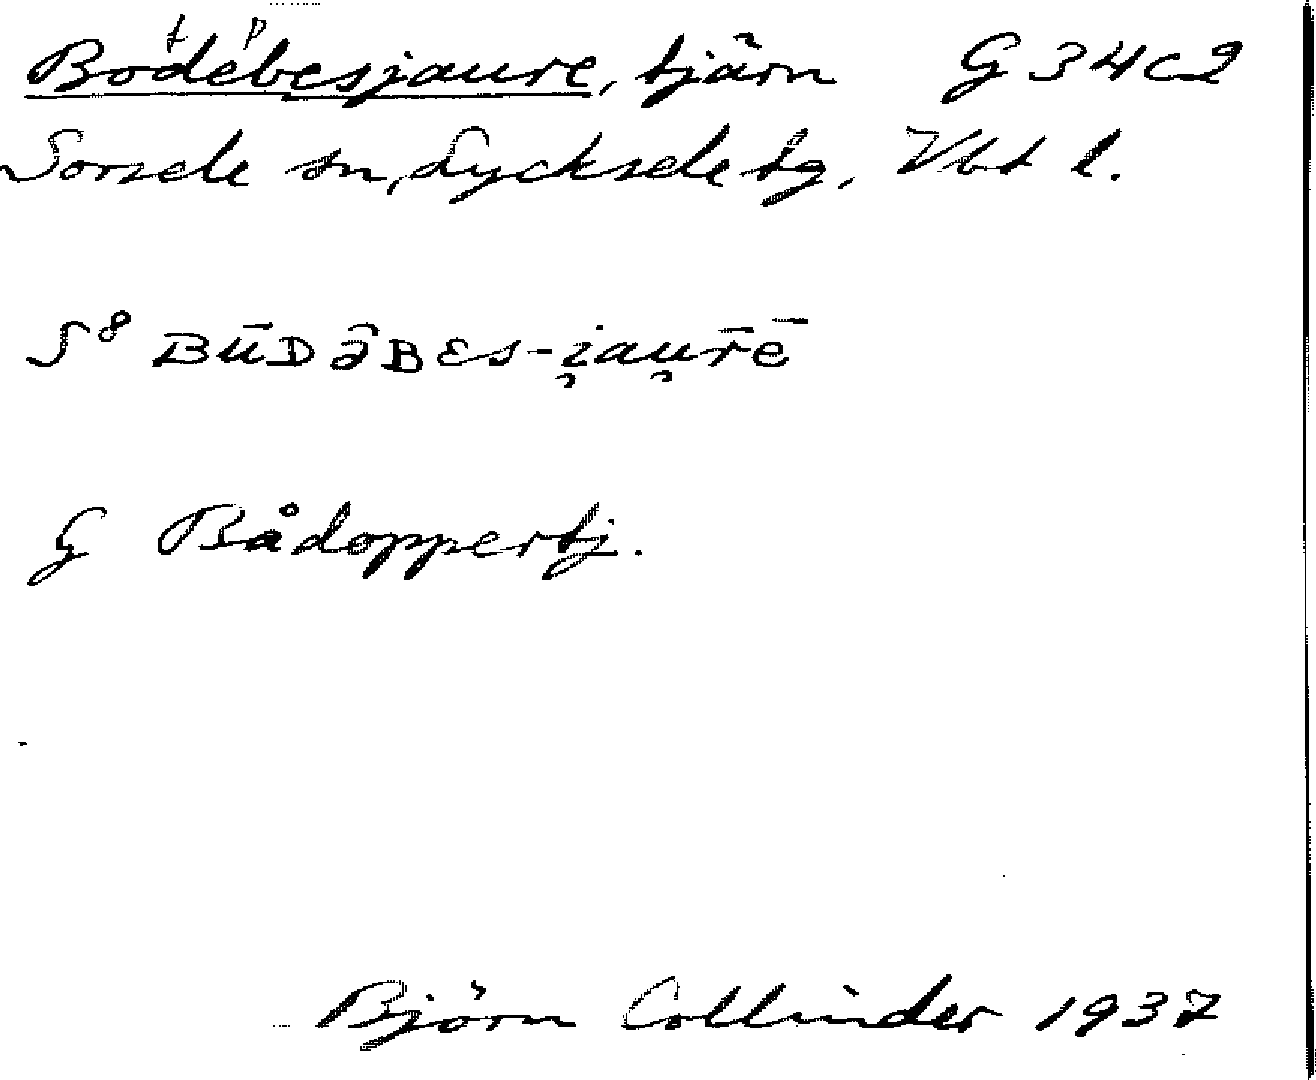 t p
Bodebesjaure, tjärn G 34c2
Sorsele sn, Lycksele tg, Vbt l.
S⁸ BūDə̑BƐs-i̯au̯r̄ē
G Bådoppertj.
Björn Collinder 1937